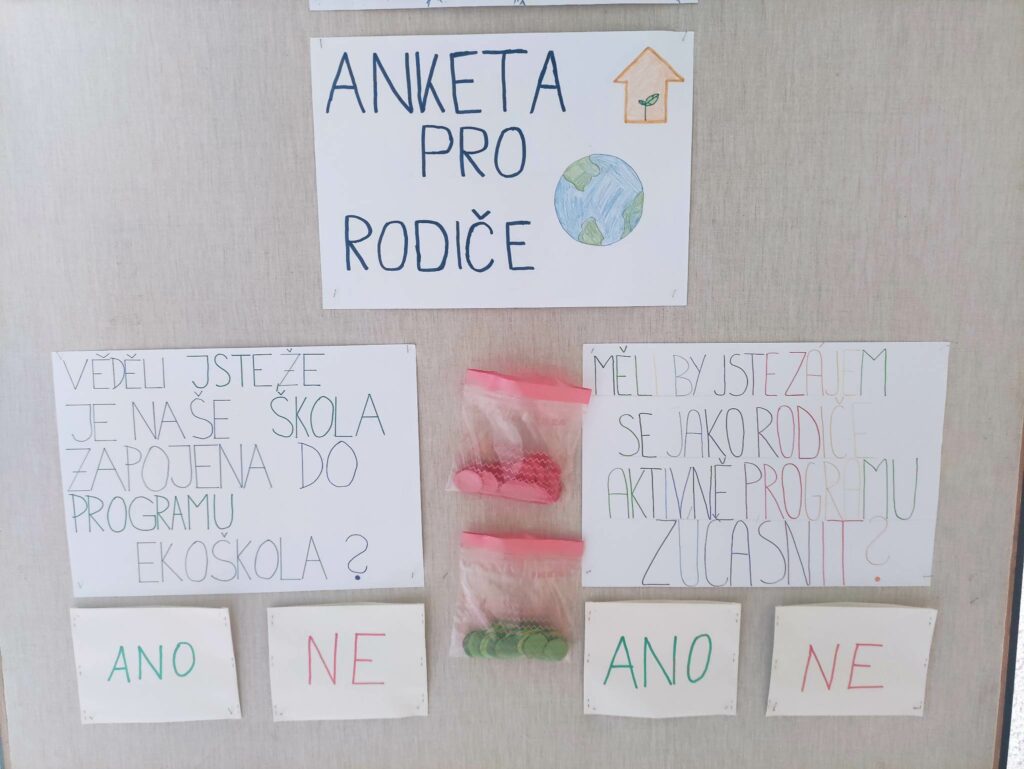 ANKETA
PRO
RODIČE
VĚDĚLI JSTE ŽE
JE NAŠE ŠKOLA
ZAPOJENA DO
PROGRAMU
EKOŠKOLA?
ANO
NE
MĚLI BY JSTE ZÁJEM
SE JAKO RODIČE
AKTIVNĚ PROGRAMU
ZÚČASNIT?
ANO
NE